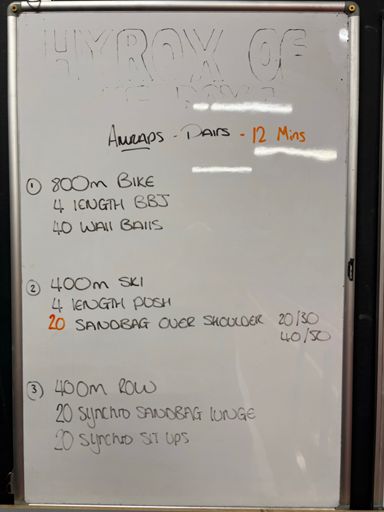 HYROX OF
AMRAPS - PAIRS - 12 Mins
① 800m BIKE
4 LENGTH BBJ
40 WALL BALLS
② 400m SKI
4 LENGTH PUSH
20 SANDBAG OVER SHOULDER 20/30
40/50
③ 400m ROW
20 SYNCHRO SANDBAG LUNGE
20 SYNCHRO SIT UPS